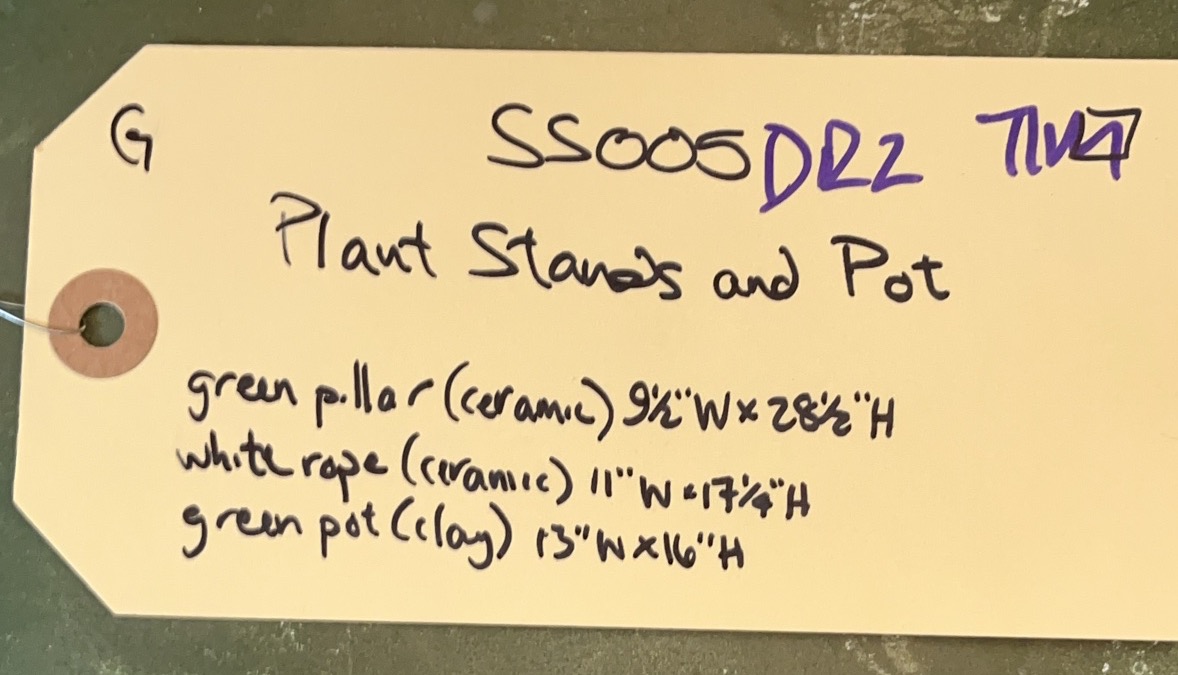 G SS005 DR2
Plant Stands and Pot
green pillar (ceramic) 9½" W x 28½" H
white rope (ceramic) 11" W x 17¼" H
green pot (clay) 13" W x 16" H